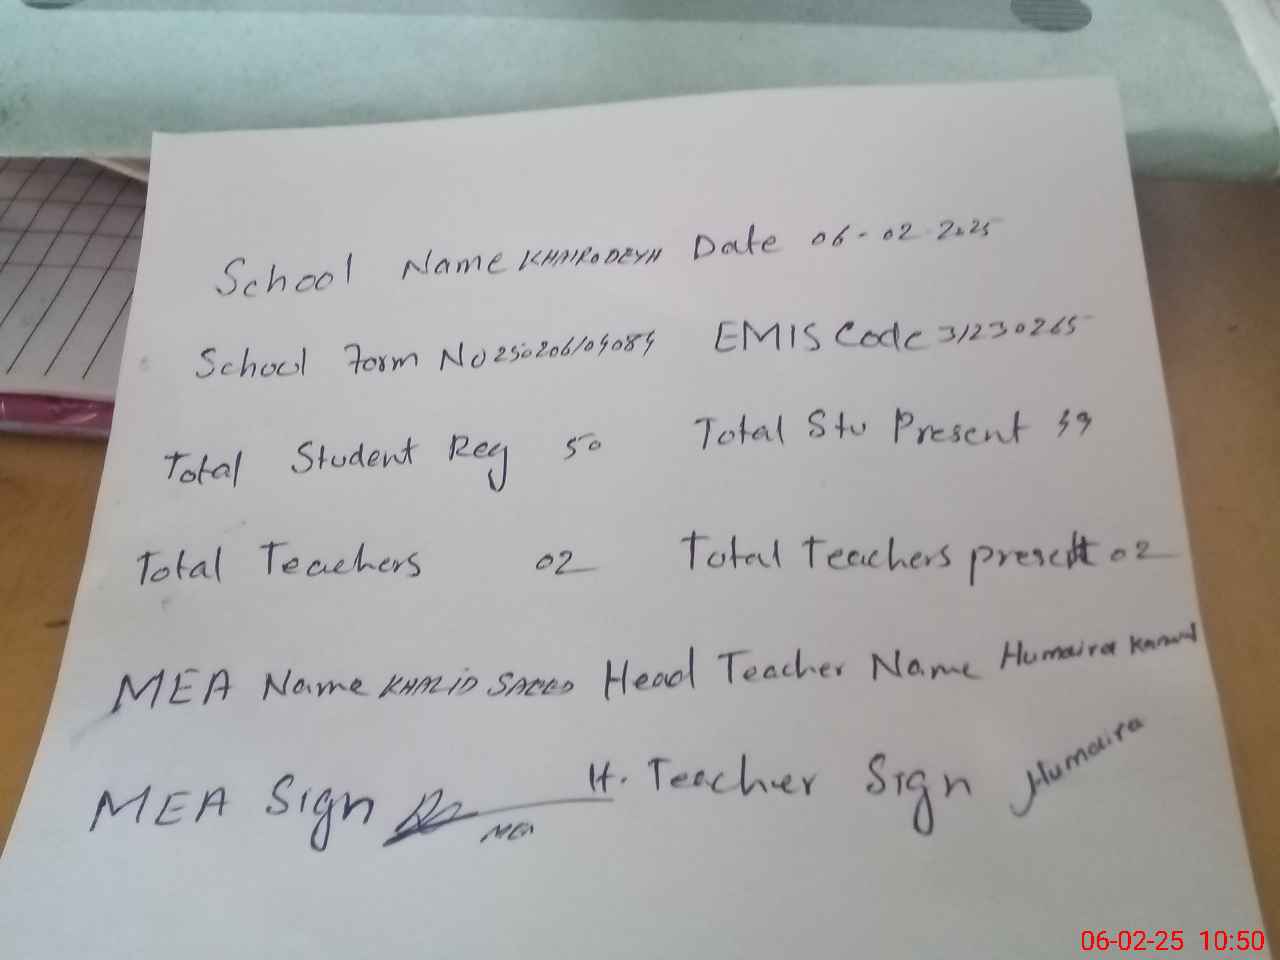 School Name KHAIRODEYH Date 06-02-2025
School Form No 250206104084 EMIS Code 31230265
Total Student Reg 50 Total Stu Present 49
Total Teachers 02 Total Teachers present 02
MEA Name KHALID SAEED Head Teacher Name Humaira Kanwal
MEA Sign MEA H. Teacher Sign Humaira
06-02-25 10:50